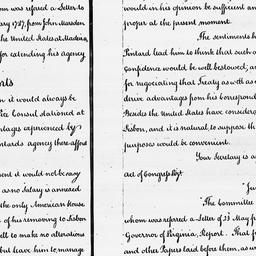 whom was refered a Letter to
ary 1787, from John Marsden
the United States at Madeira,
for extending his agency
n it would always be
Vice Consul stationed at
antages experienced by
Pintards agency there afford
ment it would not be easy
as no Salary is annexed
the only American house
of his removing to Lisbon
well to make no alterations
but leave him to manage
would in his opinion be sufficient an
proper at the present moment.
The sentiments h
Pintard lead him to think that such a
Confidence would be well bestowed; an
for negotiating that Treaty as well as a
derive advantages from his Correspond
Besides the United States have considera
Lisbon, and it is natural to suppose th
purposes would be convenient.
Your Secretary is a
Act of Congress Sept
Ju
"The Committee
whom was referred a Letter of 23 May f
Governor of Virginia, Report. That f
and other Papers laid before them, as w